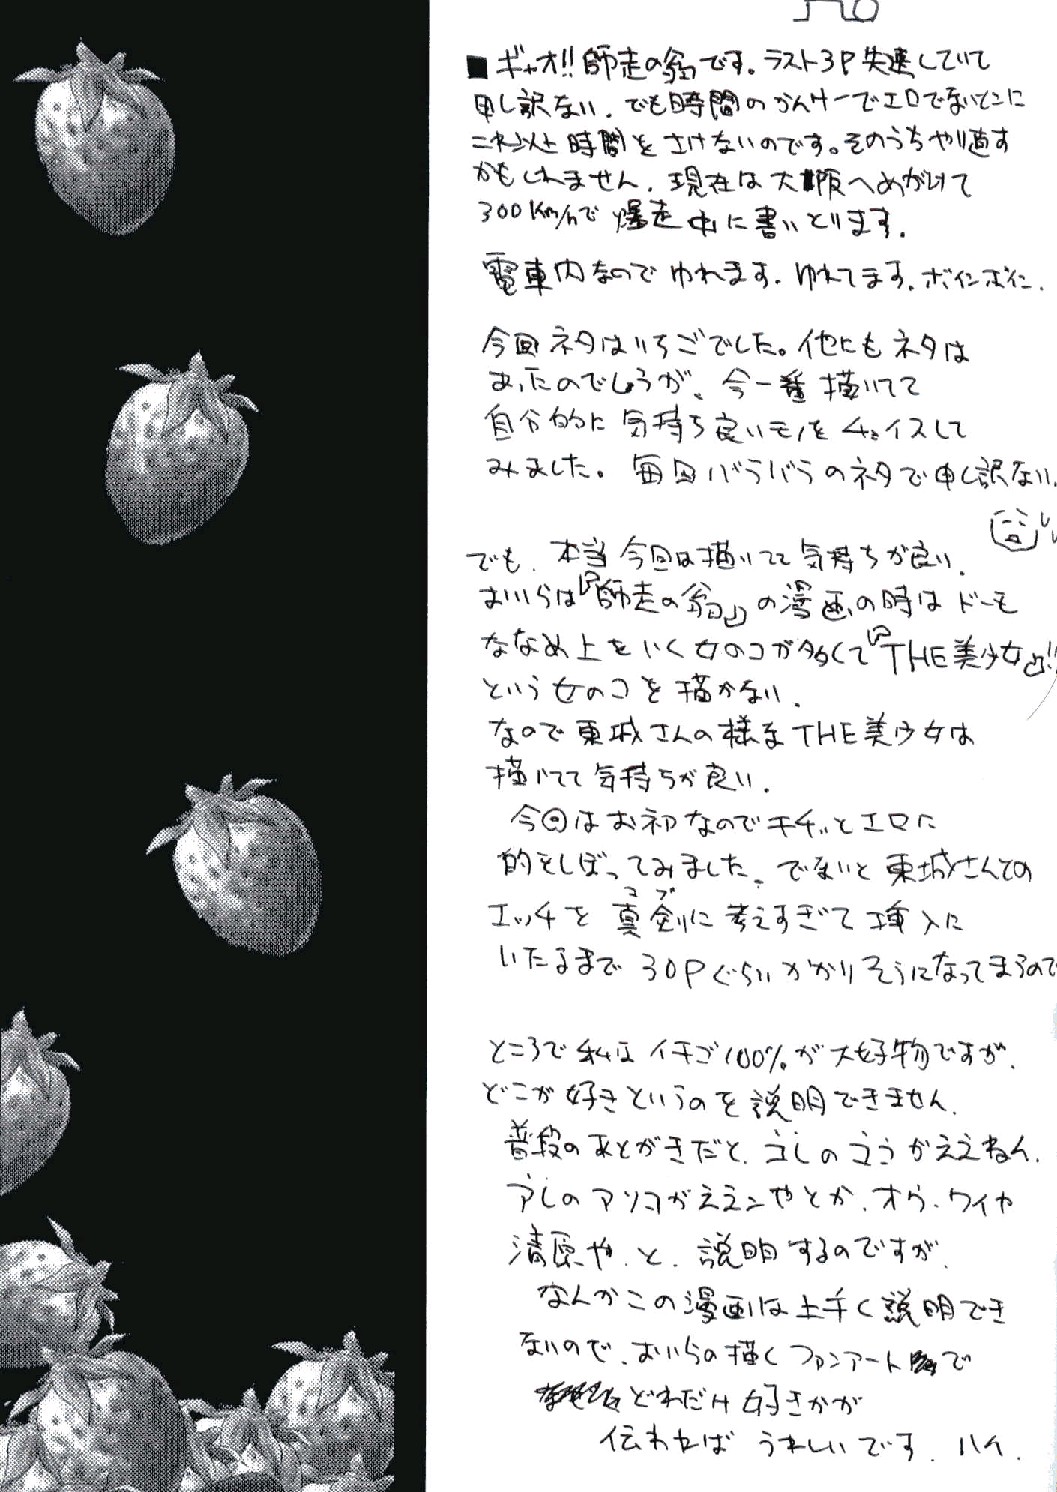 ■ギャオ!!師走の翁です。ラスト3P失速していて
申し訳ない。でも時間のかんけーでエロでないとこに
これ以上時間をさけないのです。そのうちやり直す
かもしれません。現在は大阪へめがけて
300Km/hで爆走中に書いとります。
電車内なのでゆれます。ゆれてます。ボインボイン.
今回ネタはいちごでした。他にもネタは
あったのでしょうが、今一番描いてて
自分的に気持ち良いモノをチョイスして
みました。毎回バラバラのネタで申し訳ない.
でも、本当今回は描いてて気持ちが良い.
おいらは『師走の翁』の漫画の時はドーモ
ななめ上をいく女のコが多くて『THE美少女』!!
という女のコを描かない.
なので東城さんの様なTHE美少女は
描いてて気持ちが良い.
今回はお初なのでキチッとエロに
的をしぼってみました。でないと東城さんでの
エッチを真剣に考えすぎて挿入に
いたるまで30Pぐらいかかりそうになってまうので
ところで私はイチゴ100%が大好物ですが.
どこが好きというのを説明できません.
普段のあとがきだと、コレのココがええねん.
アレのアソコがええンやとか、オウ、ワイや
清原や、と、説明するのですが.
なんかこの漫画は上手く説明でき
ないので、おいらの描くファンアートで
どれだけ好きかが
伝わればうれしいです.ハイ.